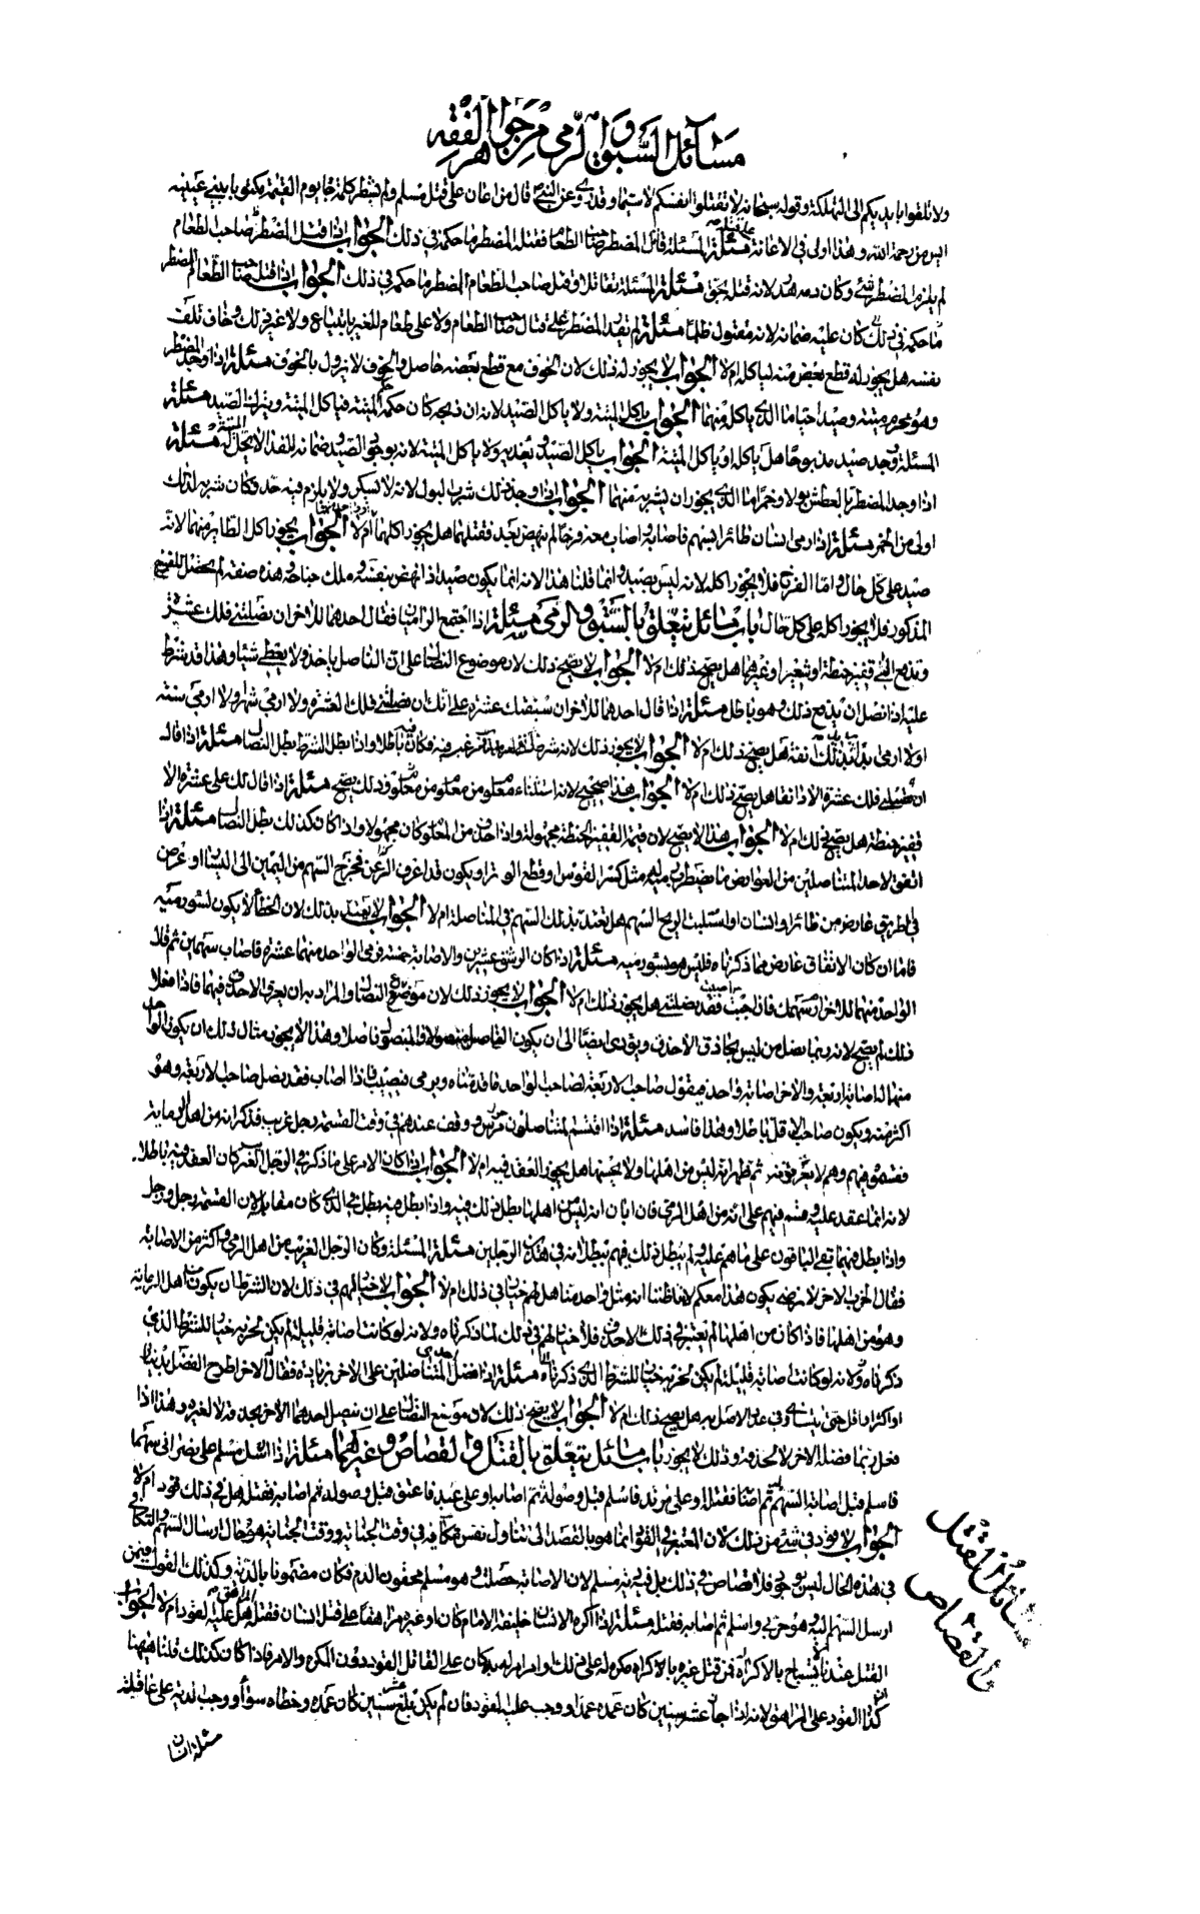 مسائل السبق والرمي من جواهر الفقه
ولا تلقوا بايديكم الى التهلكة وقوله سبحانه لا تقتلوا انفسكم لا سيما وقد روي عن النبي قال من اعان على قتل مسلم ولو بشطر كلمة جاء يوم القيمة مكتوبا بين عينيه
ايس من رحمة الله وهذا اولى في الاعانة على قتله مسئلة المسئلة قاتل المضطر صاحب الطعام فقتله المضطر ما حكمه في ذلك الجواب اذا قتل المضطر صاحب الطعام
لم يلزم المضطر شئ وكان دمه هدر لانه قتله بحق مسئلة المسئلة تقاتلا وقتل صاحب الطعام المضطر ما حكمه في ذلك الجواب اذا قتل صاحب الطعام المضطر
ما حكمه في ذلك كان عليه ضمانه لانه مقتول ظلما مسئلة لم يقدر المضطر على قتال صاحب الطعام ولا على طعام للغير بابتياع ولا غير ذلك وخاف تلف
نفسه هل يجوز له قطع بعض منه لياكله ام لا الجواب لا يجوز له ذلك لان الخوف مع قطع بعضه حاصل والخوف لا يزول بالخوف مسئلة اذا وجد المضطر
وهو محرم ميتة وصيدا حيا ما الذي ياكل منهما الجواب ياكل الميتة ولا ياكل الصيد لانه ان ذبحه كان حكمه حكم الميتة فياكل الميتة ويترك الصيد مسئلة
المسئلة وجد صيد مذبوحا هل ياكله او ياكل الميتة الجواب ياكل الصيد ويفديه ولا ياكل الميتة لانه
اذا وجد المضطر بالعطش بولا وخمرا ما الذي يجوز ان يشربه منهما الجواب اذا وجد ذلك شرب البول لانه لا يسكر ولا يلزم فيه حد وكان شربه لذلك
اولى من الخمر مسئلة اذا رمى انسان طائرا فاصابه واصاب معه فرخا لم ينهض بعد فقتلهما هل يجوز اكلهما ام لا الجواب يجوز اكل الطاير منهما لانه
صيد على كل حال واما الفرخ فلا يجوز اكله لانه ليس بصيد وانما قلنا هذا لانه انما يكون صيدا اذا نهض بنفسه وملك جناحه وهذه صفته لم تحصل للفرخ
المذكور فلا يجوز اكله على كل حال باب مسائل تتعلق بالسبق والرمي مسئلة اذا اجتمع الراميان فقال احدهما للاخر ان نضلتني فلك عشرة
وتدفع الي قفيز حنطة او شعير او غيرهما هل يصح ذلك ام لا الجواب لا يصح ذلك لان موضوع النضال على ان الناضل ياخذ ولا يعطي شيئا وهذا قد شرط
عليه اذا نضل ان يدفع ذلك وهو باطل مسئلة اذا قال احدهما للاخر ان سبقتك عشرة على انك ان نضلتني فلك العشرة ولا ارمي شهرا ولا ارمي سنة
اولا ارمي ابدا هل يصح ذلك ام لا الجواب لا يجوز ذلك لانه شرط فكان باطلا واذا بطل الشرط بطل النضال مسئلة اذا قال
ان نضلتني فلك عشرة الا دانقا هل يصح ذلك ام لا الجواب هذا صحيح لانه استثناء معلوم من معلوم وذلك يصح مسئلة اذا قال لك علي عشرة الا
قفيز حنطة هل يصح ذلك ام لا الجواب هذا لا يصح لان قيمة القفيز الحنطة مجهولة واذا حذف من المعلوم كان مجهولا واذا كان كذلك بطل النضال مسئلة اذا
اتفق لاحد المتناضلين من العوارض ما يضطرب رميه مثل كسر القوس وقطع الوتر او يكون قد اغرق النزع فخرج السهم من اليمين الى اليسار او عرض
في الطريق عارض من طائر او انسان او استلبت الريح السهم هل يعتد بذلك السهم في المناضلة ام لا الجواب لا يعتد بذلك لان الخطأ لا يكون لسوء رميه
فاما ان كان الاتفاق عارض مما ذكرناه فليس هو بسوء رميه مسئلة اذا كان الرشق عشرين والاصابة خمسة فرمى الواحد منهما عشرة فاصاب سهمين ثم قال
الواحد منهما للاخر ارم سهمك فان اصبت فقد نضلتني هل يجوز ذلك ام لا الجواب لا يجوز ذلك لان موضع النضال والمراد به ان يعرف الاحذق فيهما فاذا فعلا
ذلك لم يصح لانه ربما نضل من ليس بحاذق الاحذق ويؤدي ايضا الى ان يكون الناضل منضولا والمنضول ناضلا وهذا لا يجوز مثال ذلك ان يكون الواحد
منهما له اصابة اربعة والاخر اصابة واحدة فيقول صاحب الاربعة لصاحب الواحد ويرمي فيصيب فاذا اصاب فقد نضل صاحب الاربعة وهو
اكثر منه ويكون صاحب الاقل ناضلا وهذا فاسد مسئلة اذا اقتسم المتناضلون ووقف عندهم في وقت القسمة رجل غريب فذكر انه من اهل الرماية
فقسموه فيهم وهم لا يعرفونه ثم ظهر انه ليس من اهلها ولا يحسنها هل يجوز العقد فيه ام لا الجواب اذا كان الامر على ما ذكر في الرجل الغريب كان العقد فيه باطلا
لانه انما عقد عليه وقسم فيهم على انه من اهل الرمي فان ابان انه ليس من اهلها بطل ذلك فيه واذا بطل فيه بطل في الذي كان مقابله لان القسمة رجل ورجل
واذا بطل فيهما بقي الباقون على ما هم عليه ولم يبطل ذلك فيهم ببطلانه في هذين الرجلين مسئلة المسئلة وكان الرجل الغريب من اهل الرمي واكثر من الاصابة
فقال الحزب الاخر لا نرضى بكون هذا معكم لانا ظننا انه مثل واحد منا هل لهم خيار في ذلك ام لا الجواب لا خيار لهم في ذلك لان الشرط ان يكون من اهل الرماية
وهو من اهلها فاذا كان من اهلها لم يعتبر في ذلك الاحذق فلا خيار لهم في ذلك لما ذكرناه ولانه لو كانت اصابته قليلة لم يكن لحزبه خيار للشرط الذي
ذكرناه ولانه لو كانت اصابته قليلة لم يكن لحزبه خيار للشرط الذي ذكرناه مسئلة اذا فضل احدى المتناضلين على الاخر بزيادة فقال الاخر اطرح الفضل بدينار
او اكثر او اقل حتى نتساوى في عدد الاصابة هل يصح ذلك ام لا الجواب لا يصح ذلك لان موضع النضال على ان ينضل احدهما الاخر بحذقه لا لغيره وهذا اذا
فعل ربما فضله الاخر لا لحذقه وذلك لا يجوز باب مسائل تتعلق بالقتل والقصاص وغيرهما مسئلة اذا ارسل مسلم على نصراني سهما
فاسلم قبل اصابة السهم ثم اصابه فقتله او على مرتد فاسلم قبل وصوله ثم اصابه او على عبد فاعتق قبل وصوله ثم اصابه فقتله هل في ذلك قود ام لا
الجواب لا قود في شئ من ذلك لان المعتبر في القود انما هو بالقصد الى تناول نفس مكافئة في وقت الجناية ووقت الجناية هو حال ارسال السهم والتكافي
في هذه الحال ليس بموجود فلا قصاص في ذلك بل فيه دية مسلم لان الاصابة حصلت وهو مسلم محقون الدم فكان مضمونا بالدية وكذلك القول فيمن
ارسل السهم اليه وهو حربي واسلم ثم اصابه فقتله مسئلة اذا اكره الانسان خليفة الامام كان او غيره مراهقا على قتل انسان فقتله هل عليه القود ام لا الجواب
القتل عندنا لا يستباح بالاكراه فمن قتل غيره بالاكراه مكره له على ذلك وامر امره به كان على القاتل القود دون المكره والامر فاذا كان كذلك قلنا هيهنا
كذا القود على المراهق لانه اذا جاز عشر سنين كان عمده عمدا ووجب عليه القود فان لم يكن بلغ عشر سنين كان عمده وخطاه سواء ووجب الدية على عاقلته
مسئلة اذا كان
مسائل القتل
والقصاص